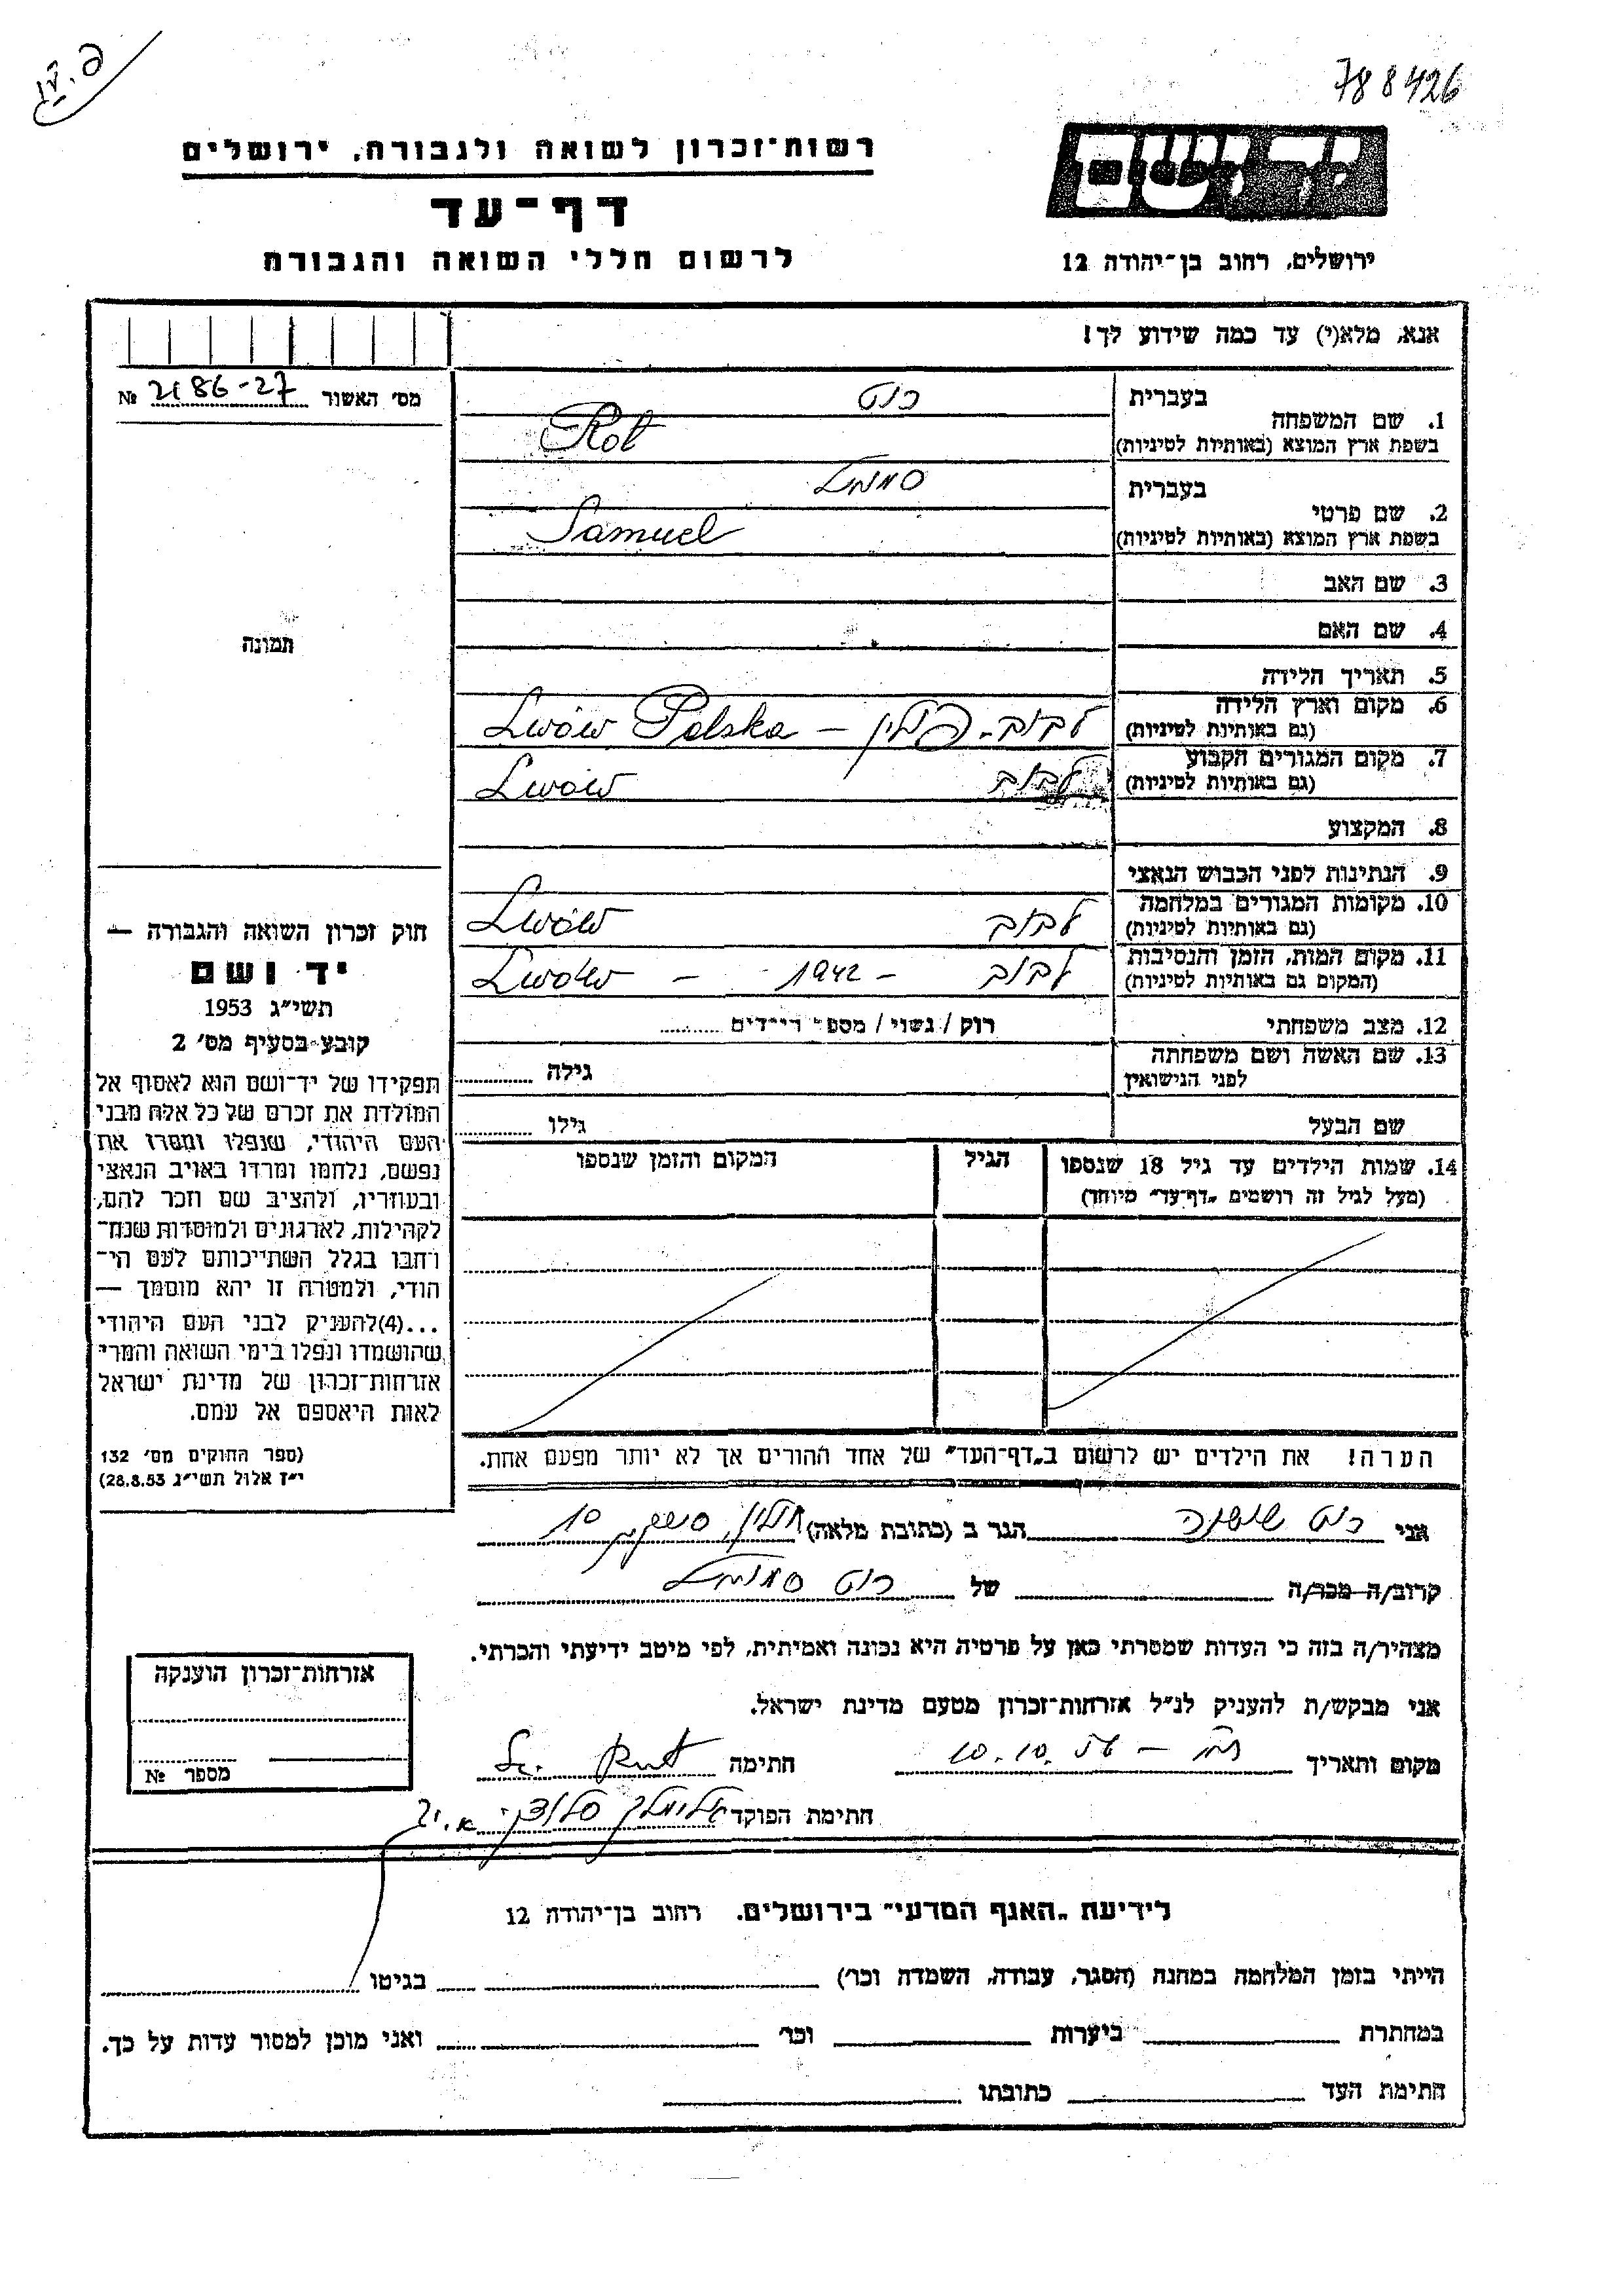 פ. IV
788426
יד ושם
רשות־זכרון לשואה ולגבורה, ירושלים
דף־עד
לרשום חללי השואה והגבורה
ירושלים, רחוב בן־יהודה 12
אנא, מלא(י) עד כמה שידוע לך!
מס׳ האשור 2186-27 №
תמונה
בעברית רוט
1. שם המשפחה
בשפת ארץ המוצא (באותיות לטיניות) Rot
בעברית סמואל
2. שם פרטי
בשפת ארץ המוצא (באותיות לטיניות) Samuel
3. שם האב
4. שם האם
5. תאריך הלידה
6. מקום וארץ הלידה
(גם באותיות לטיניות) לבוב - פולין - Lwów Polska
7. מקום המגורים הקבוע
(גם באותיות לטיניות) לבוב Lwów
8. המקצוע
9. הנתינות לפני הכבוש הנאצי
10. מקומות המגורים במלחמה
(גם באותיות לטיניות) לבוב Lwów
11. מקום המות, הזמן והנסיבות
(המקום גם באותיות לטיניות) לבוב - 1942 - Lwów
12. מצב משפחתי רוק / נשוי / מספר הילדים
13. שם האשה ושם משפחתה
לפני הנישואין גילה
שם הבעל גילו
14. שמות הילדים עד גיל 18 שנספו הגיל המקום והזמן שנספו
(מעל לגיל זה רושמים „דף־עד״ מיוחד)
הערה! את הילדים יש לרשום ב„דף־העד״ של אחד ההורים אך לא יותר מפעם אחת.
חוק זכרון השואה והגבורה —
יד ושם
תשי״ג 1953
קובע בסעיף מס׳ 2
תפקידו של יד־ושם הוא לאסוף אל
המולדת את זכרם של כל אלה מבני
העם היהודי, שנפלו ומסרו את
נפשם, נלחמו ומרדו באויב הנאצי
ובעוזריו, ולהציב שם וזכר להם,
לקהילות, לארגונים ולמוסדות שנח־
רבו בגלל השתייכותם לעם הי־
הודי, ולמטרה זו יהא מוסמך —
...(4)להעניק לבני העם היהודי
שהושמדו ונפלו בימי השואה והמרי
אזרחות־זכרון של מדינת ישראל
לאות היאספם אל עמם.
(ספר החוקים מס׳ 132
י״ז אלול תשי״ג 28.8.53)
אני רוט שושנה הגר ב (כתובת מלאה) 10
קרוב/ה מכר/ה של רוט סמואל
מצהיר/ה בזה כי העדות שמסרתי כאן על פרטיה היא נכונה ואמיתית, לפי מיטב ידיעתי והכרתי.
אני מבקש/ת להעניק לנ״ל אזרחות־זכרון מטעם מדינת ישראל.
מקום ותאריך 10.10. חתימה
חתימת הפוקד
אזרחות־זכרון הוענקה
מספר №
לידיעת „האגף המדעי״ בירושלים. רחוב בן־יהודה 12
הייתי בזמן המלחמה במחנה (הסגר, עבודה, השמדה וכו׳) בגיטו
במחתרת ביערות וכו׳ ואני מוכן למסור עדות על כך.
חתימת העד כתובתו